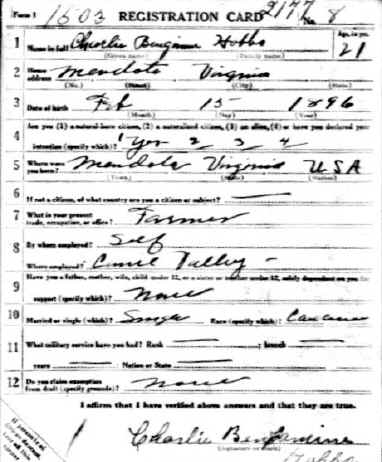 Form 1 1503 REGISTRATION CARD 2177 No. 8
1 Name in full Charlie Benjamine Hobbs Age, in yrs. 21
(Given name) (Family name)
2 Home address Mendota Virginia
(No.) (Street) (City) (State)
3 Date of birth Feb 15 1896
(Month) (Day) (Year)
Are you (1) a natural-born citizen, (2) a naturalized citizen, (3) an alien, (4) or have you declared your
4 intention (specify which)? 1 Yes 2 3 4
5 Where were you born? Mendota Virginia USA
(Town) (State) (Nation)
6 If not a citizen, of what country are you a citizen or subject?
7 What is your present trade, occupation, or office? Farmer
8 By whom employed? Self
Where employed? Valley
Have you a father, mother, wife, child under 12, or a sister or brother under 12, solely dependent on you for
9 support (specify which)? None
10 Married or single (which)? Single Race (specify which)? Caucasian
11 What military service have you had? Rank ; branch
years Nation or State
12 Do you claim exemption from draft (specify grounds)? None
I affirm that I have verified above answers and that they are true.
Charlie Benjamine
Hobbs